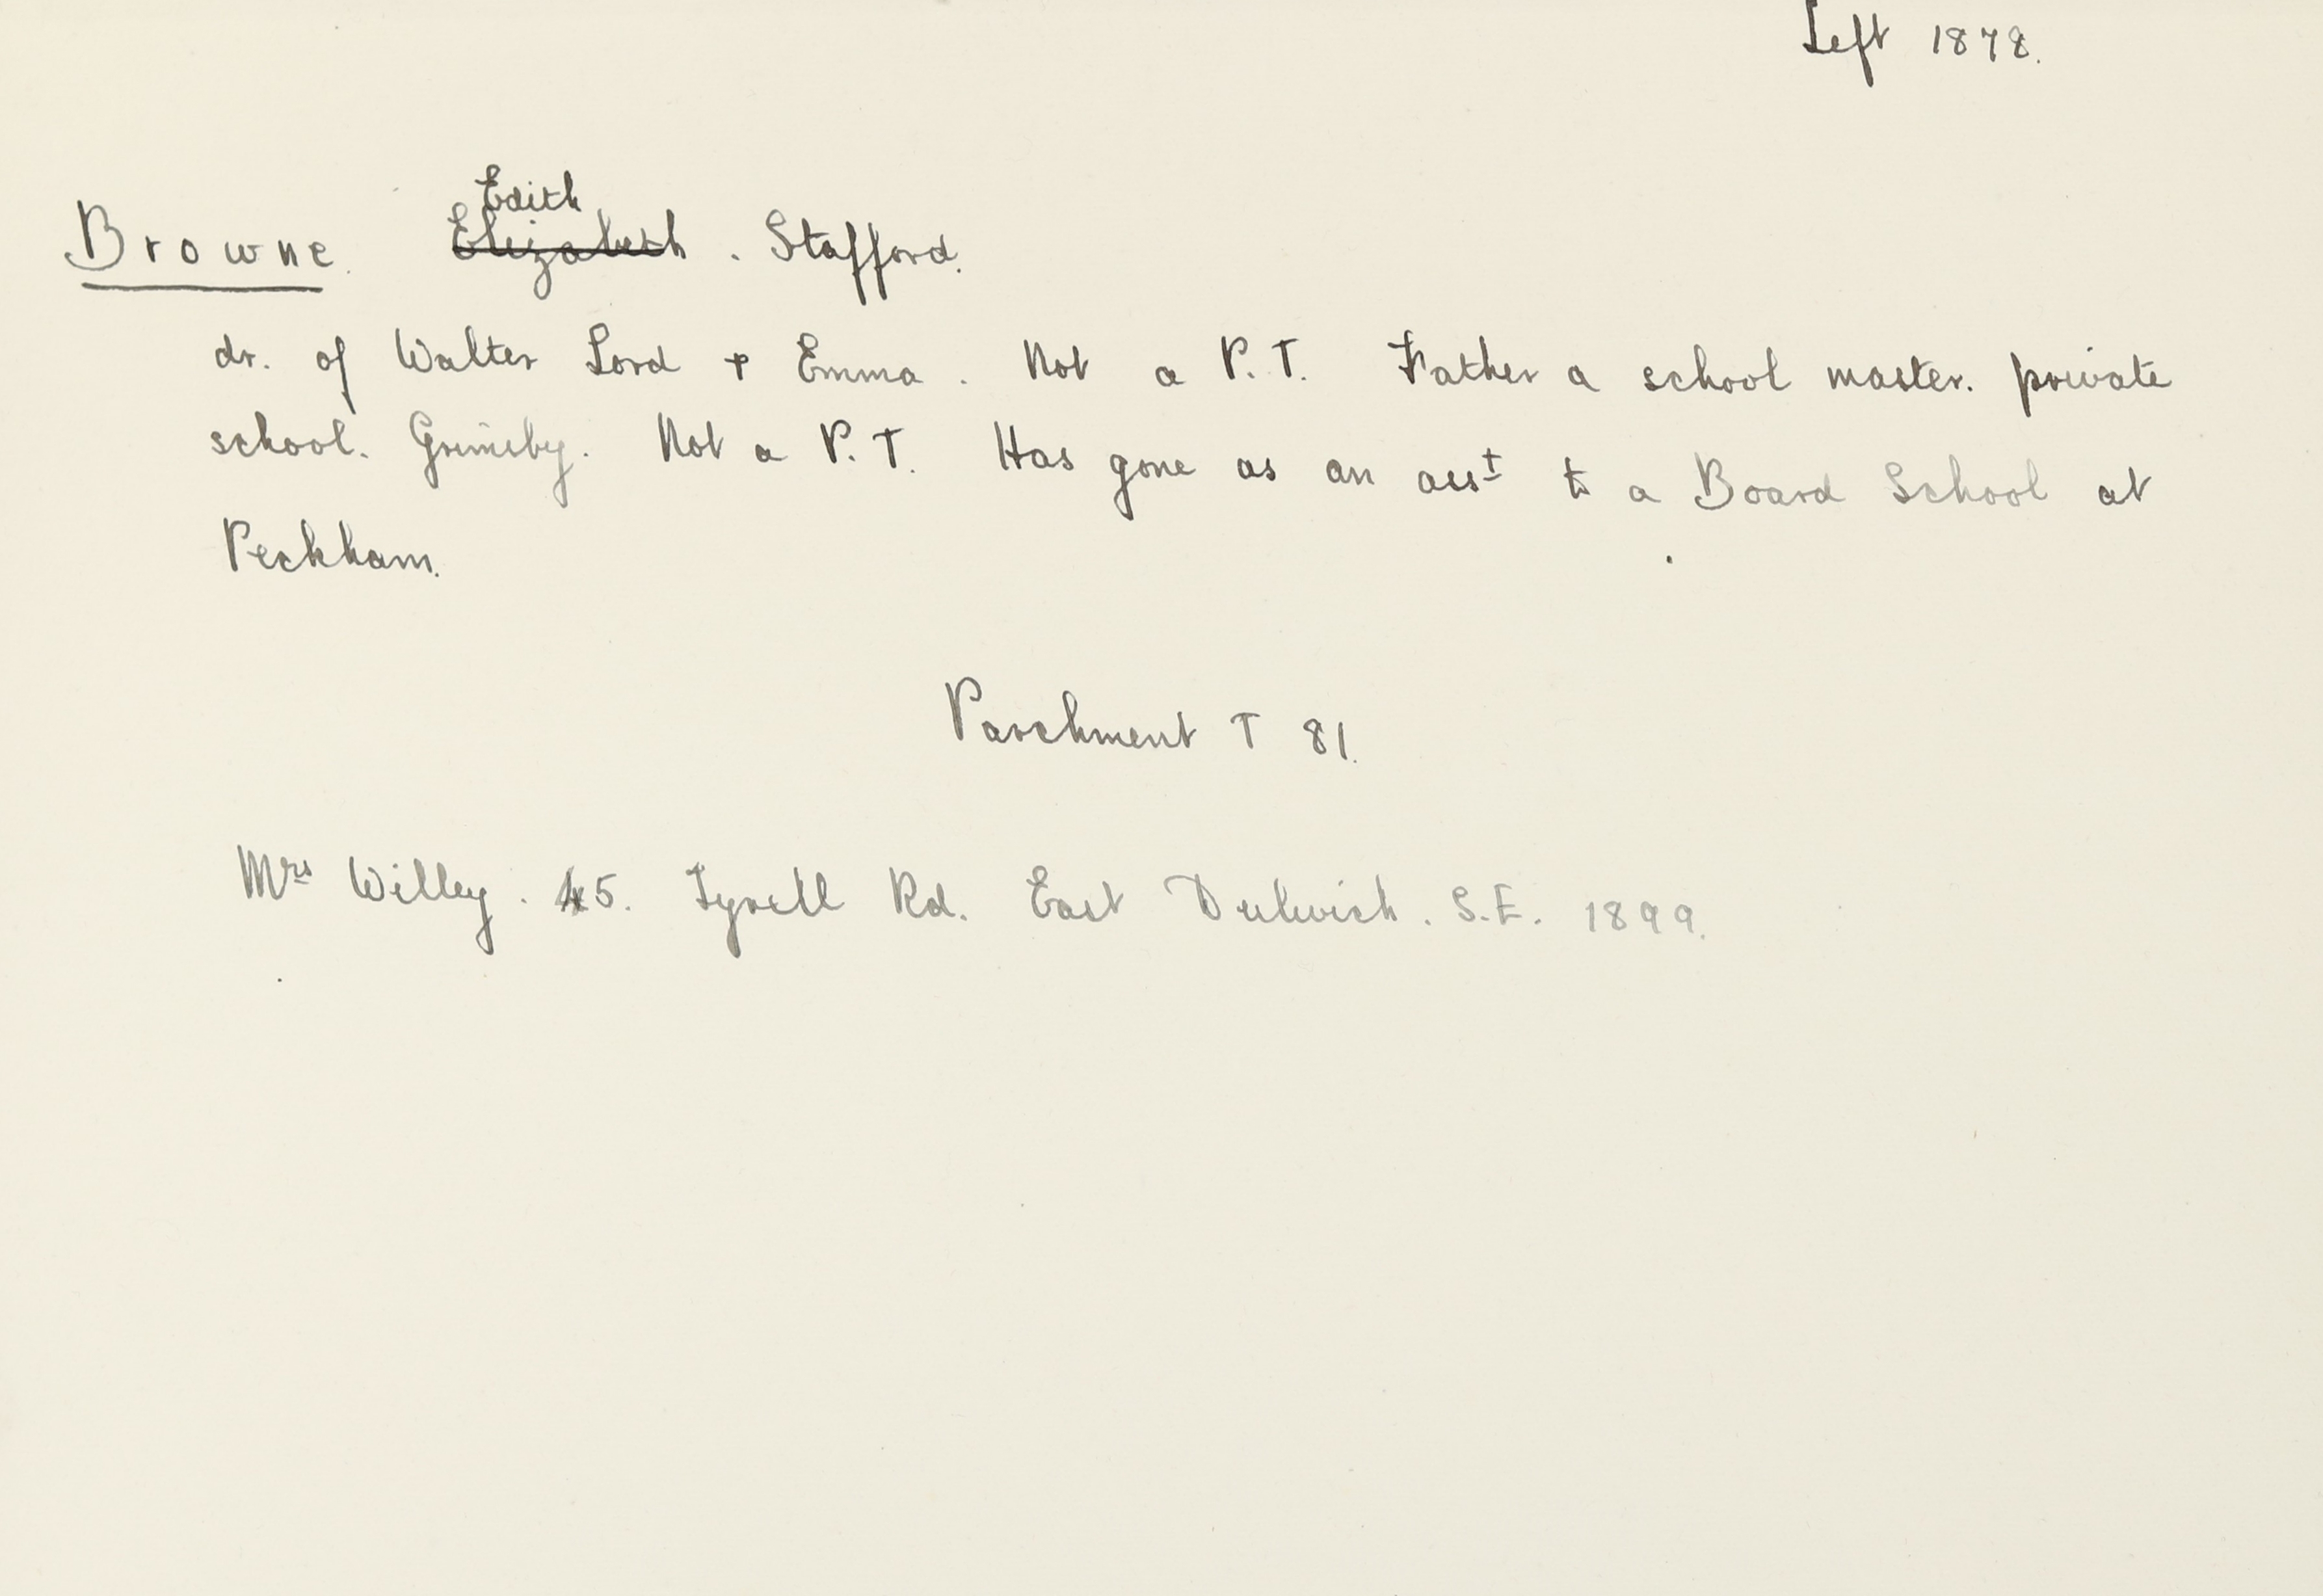 Left 1878.
Edith
Browne. Elizabeth . Stafford.
dr. of Walter Lord + Emma . Not a P.T. Father a school master. private
school. Grimsby. Not a P.T. Has gone as an asst to a Board School at
Peckham.
Parchment T 81.
Mrs Willey . 45. Tyrell Rd. East Dulwich . S.E. 1899.